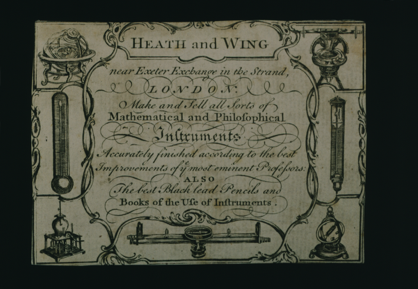 HEATH and WING
near Exeter Exchange in the Strand,
LONDON:
Make and Sell all Sorts of
Mathematical and Philosophical
Instruments
Accurately finished according to the best
Improvements of yͤ most eminent Professors:
ALSO
The best Black lead Pencils and
Books of the Use of Instruments.